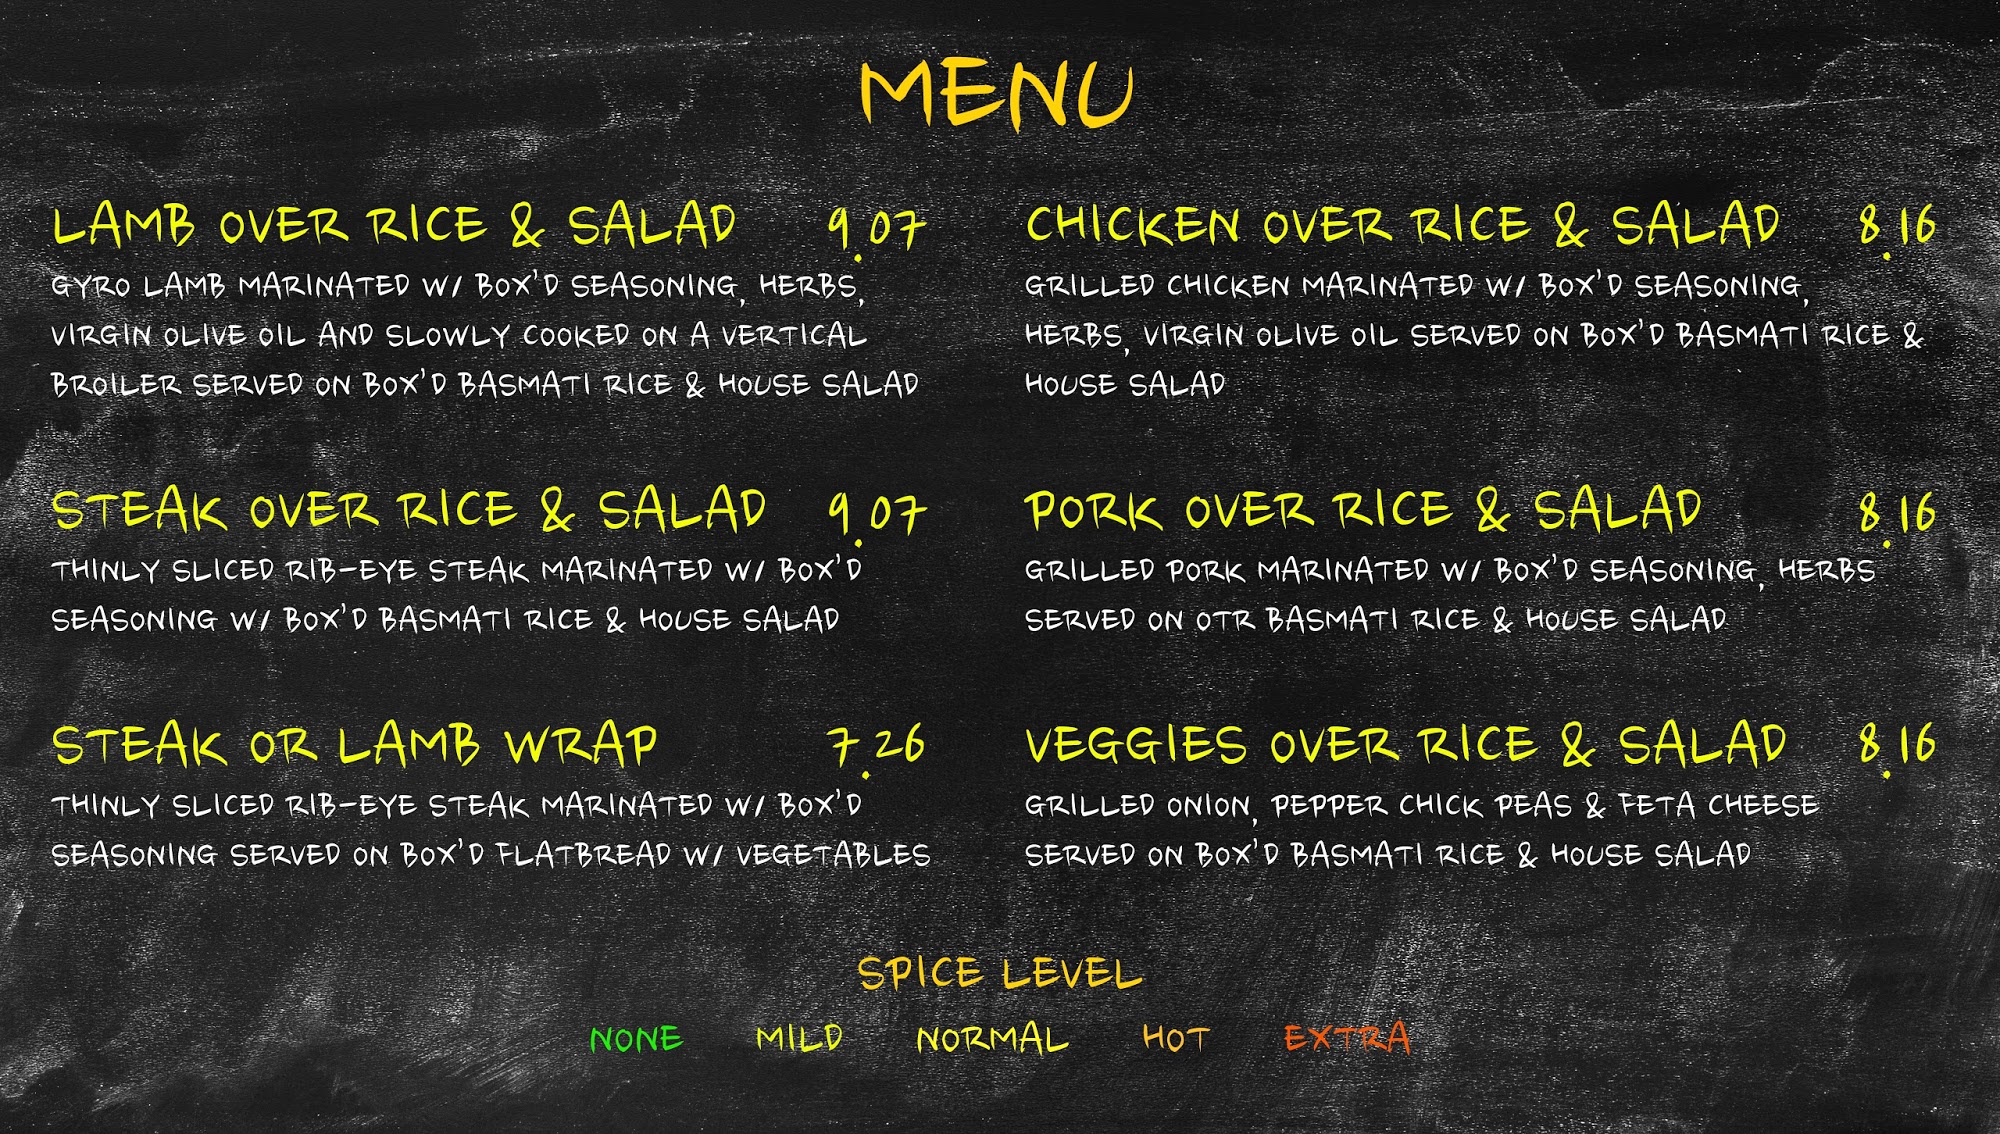 MENU
LAMB OVER RICE & SALAD 9.07
GYRO LAMB MARINATED W/ BOX'D SEASONING, HERBS,
VIRGIN OLIVE OIL AND SLOWLY COOKED ON A VERTICAL
BROILER SERVED ON BOX'D BASMATI RICE & HOUSE SALAD
STEAK OVER RICE & SALAD 9.07
THINLY SLICED RIB-EYE STEAK MARINATED W/ BOX'D
SEASONING W/ BOX'D BASMATI RICE & HOUSE SALAD
STEAK OR LAMB WRAP 7.26
THINLY SLICED RIB-EYE STEAK MARINATED W/ BOX'D
SEASONING SERVED ON BOX'D FLATBREAD W/ VEGETABLES
CHICKEN OVER RICE & SALAD 8.16
GRILLED CHICKEN MARINATED W/ BOX'D SEASONING,
HERBS, VIRGIN OLIVE OIL SERVED ON BOX'D BASMATI RICE &
HOUSE SALAD
PORK OVER RICE & SALAD 8.16
GRILLED PORK MARINATED W/ BOX'D SEASONING, HERBS
SERVED ON OTR BASMATI RICE & HOUSE SALAD
VEGGIES OVER RICE & SALAD 8.16
GRILLED ONION, PEPPER CHICK PEAS & FETA CHEESE
SERVED ON BOX'D BASMATI RICE & HOUSE SALAD
SPICE LEVEL
NONE MILD NORMAL HOT EXTRA